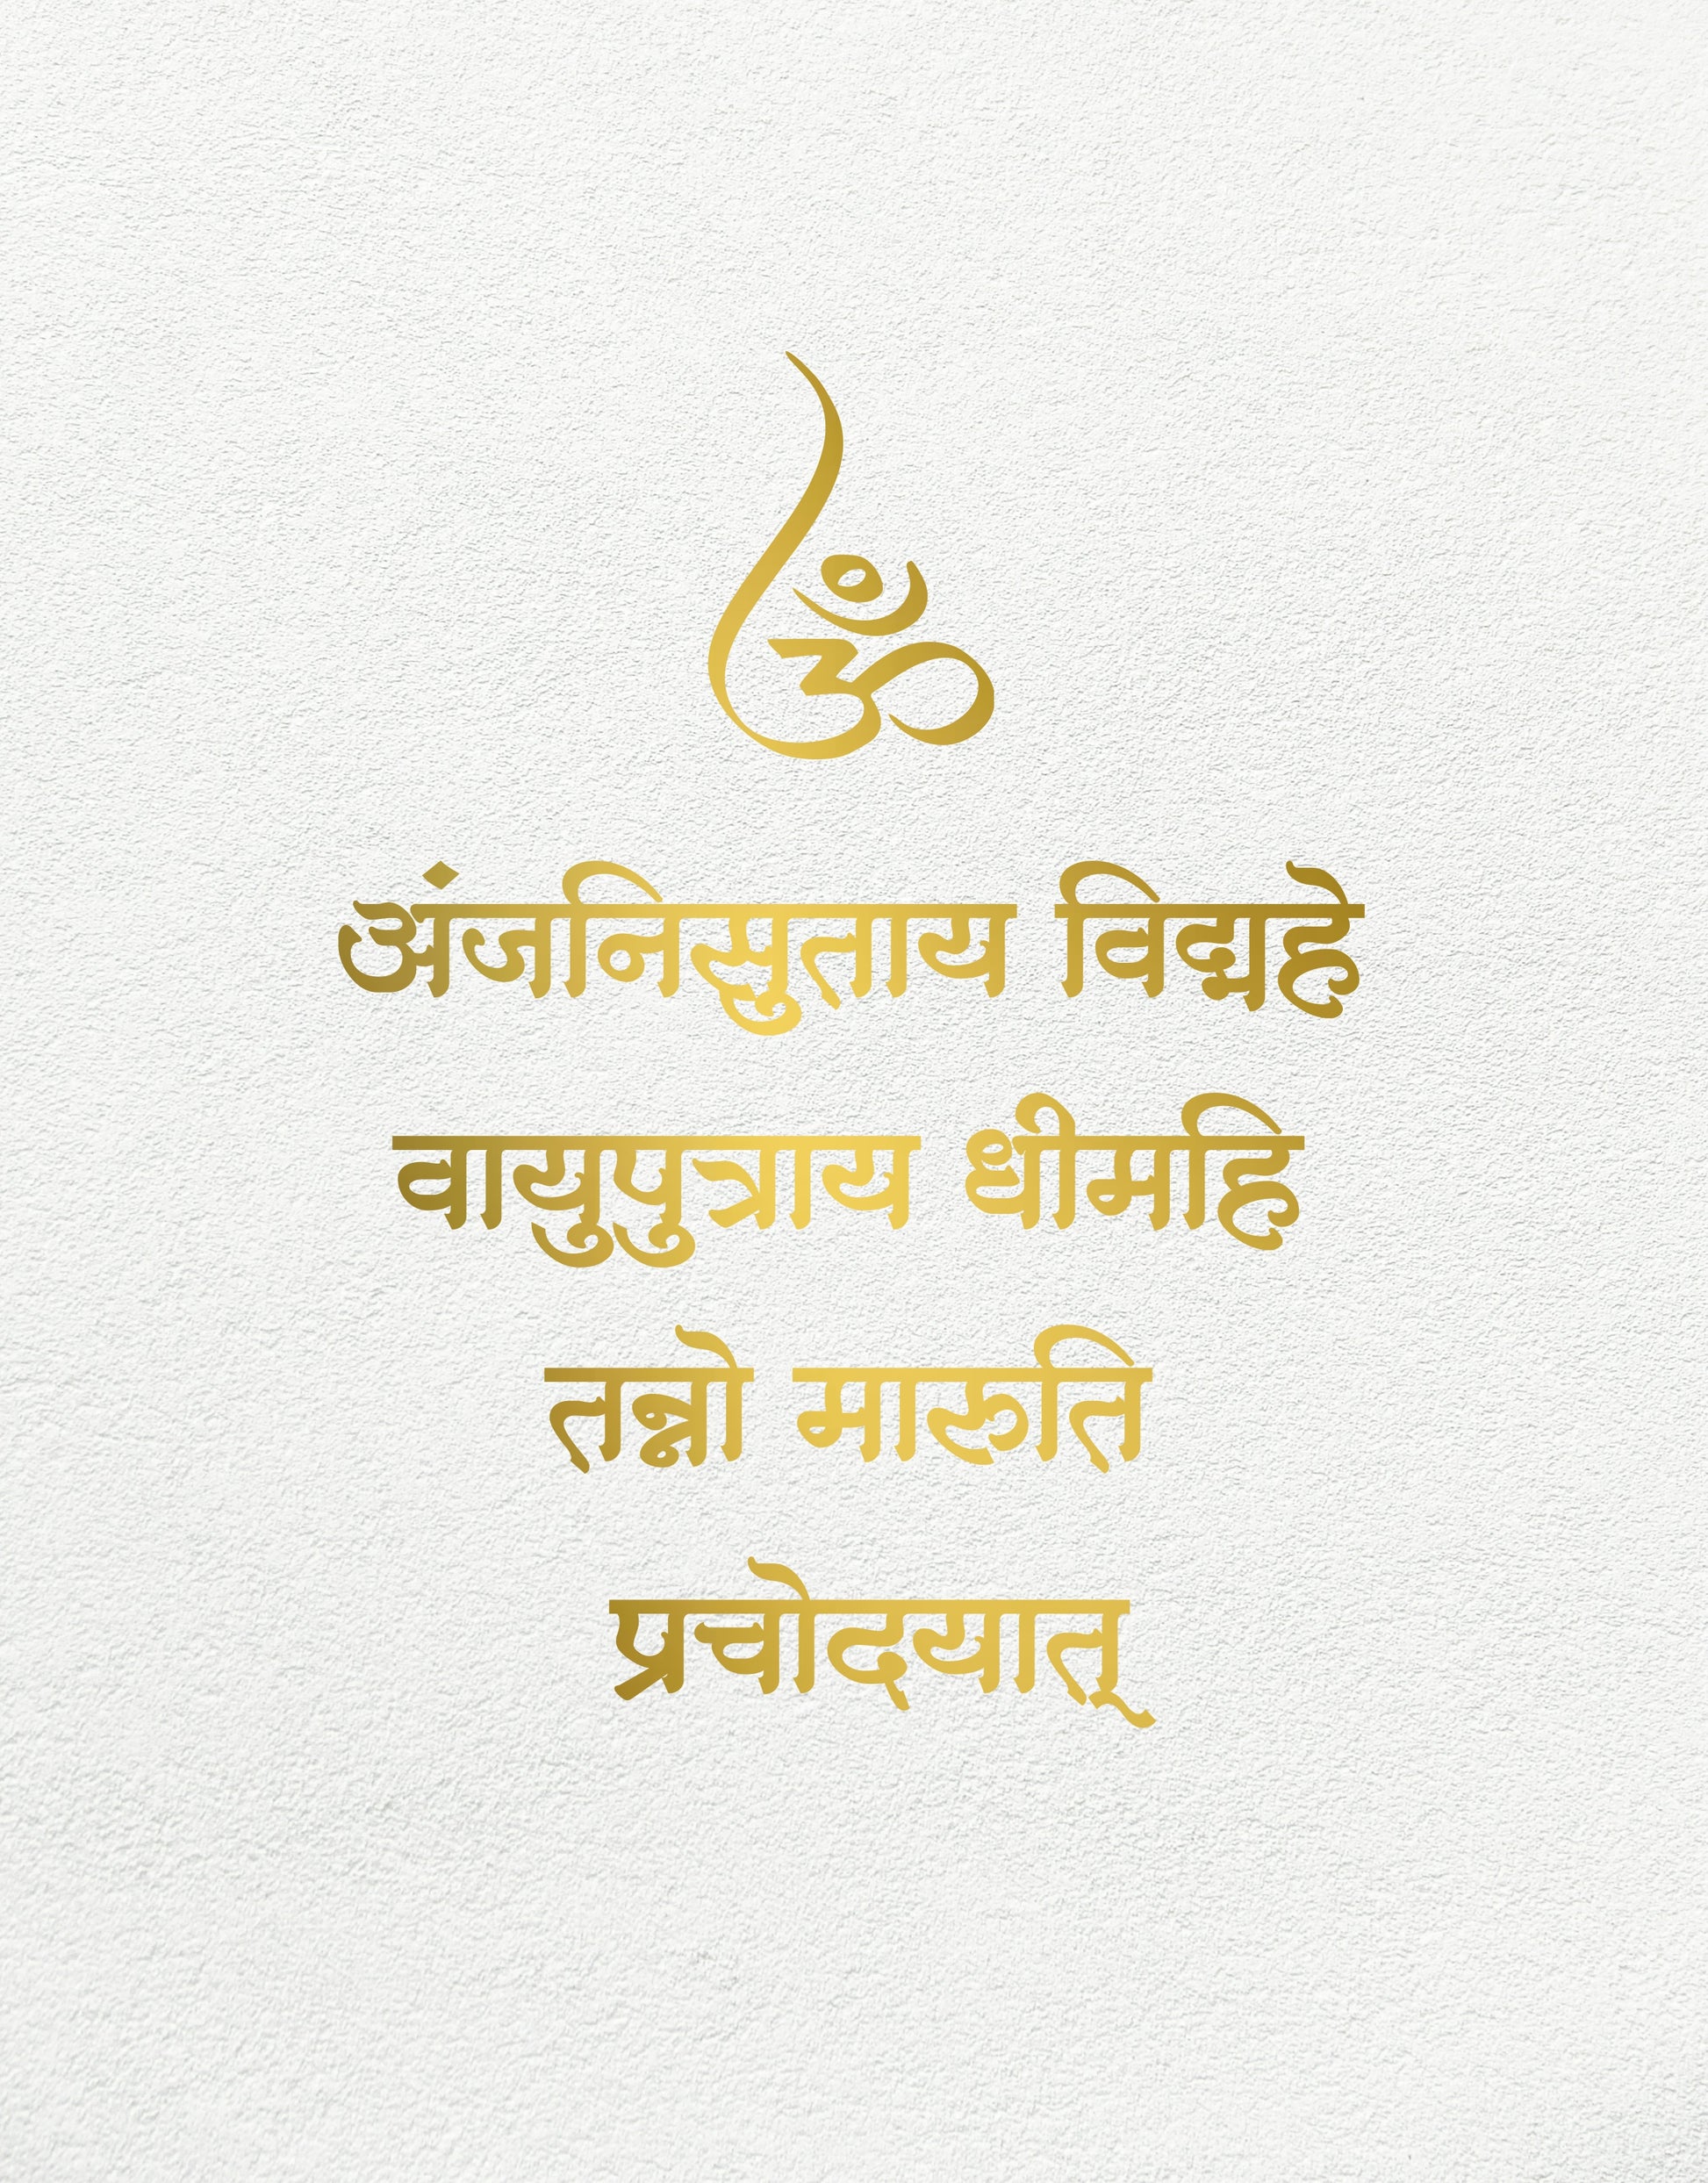 ॐ
अंजनिसुताय विद्महे
वायुपुत्राय धीमहि
तन्नो मारुति
प्रचोदयात्